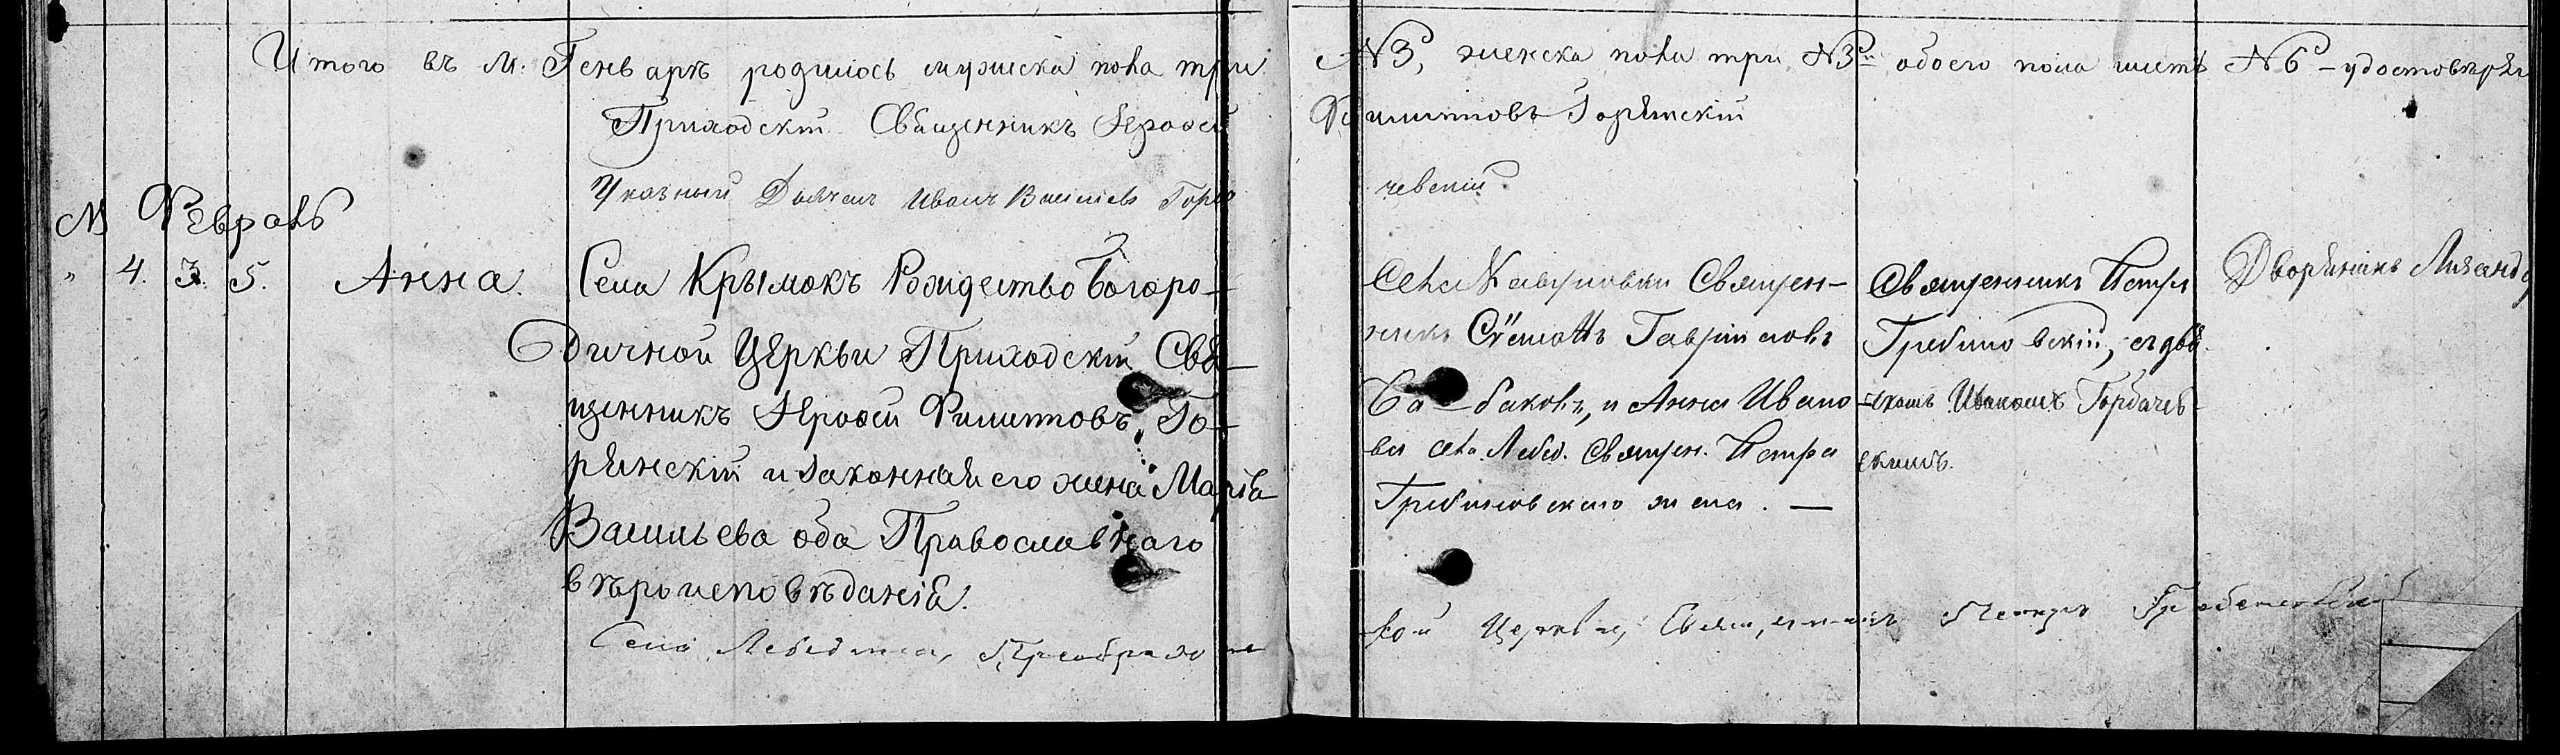 Итого въ М. Генварѣ родилось мужеска пола три
№3, женска пола три №3 обоего пола шесть №6 – удостовѣряю
Приходскій Священникъ Іерофей
Филипповъ Горянскій
Указный Дьячекъ Иванъ Васильевъ Горба
чевскій
№ Февраль
" 4. 3. 5. Анна.
Села Крымокъ Рождество Богоро-
дичной Церкви Приходскій Свя-
щенникъ Іерофей Филипповъ Го-
рянскій и законная его жена Марія
Васильева оба Православнаго
вѣроисповѣданія.
Села Священ-
никъ Гавриловъ
и Анна Ивано-
ва села Лебед. Священ. Петра
Гребиновскаго жена. —
Священникъ Петръ
Гребиновскій, съ дья-
чкомъ Иваномъ Горбачев-
скимъ.
Дворянинъ
Села Лебедина, Преображенс
кой Церкви, Священникъ Петръ